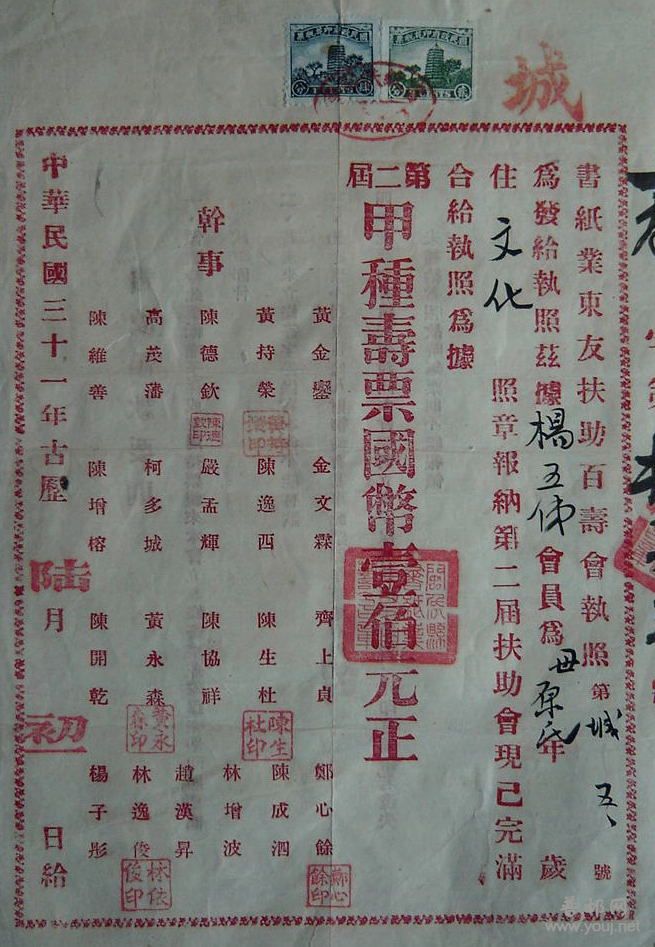 城
書紙業東友扶助百壽會執照第城五號
為發給執照茲據楊五俤會員為母原氏年 歲
住文化 照章報納第二届扶助會現已完滿
合給執照為據
第二届
甲種壽票國幣壹佰元正
幹事
黃金鑾 金文霖 齊上貞 鄭心餘
黃持榮 陳逸西 陳生杜 陳成泗
陳德欽 嚴孟輝 陳協祥 林增波
趙漢昇
高茂藩 柯多城 黃永森 林逸俊
陳維善 陳增榕 陳開乾 楊子彤
中華民國三十一年古歷陸月初 日給
陳德欽印
陳生杜印
黃永森印
林依俊印
鄭心餘印
www.youj.net